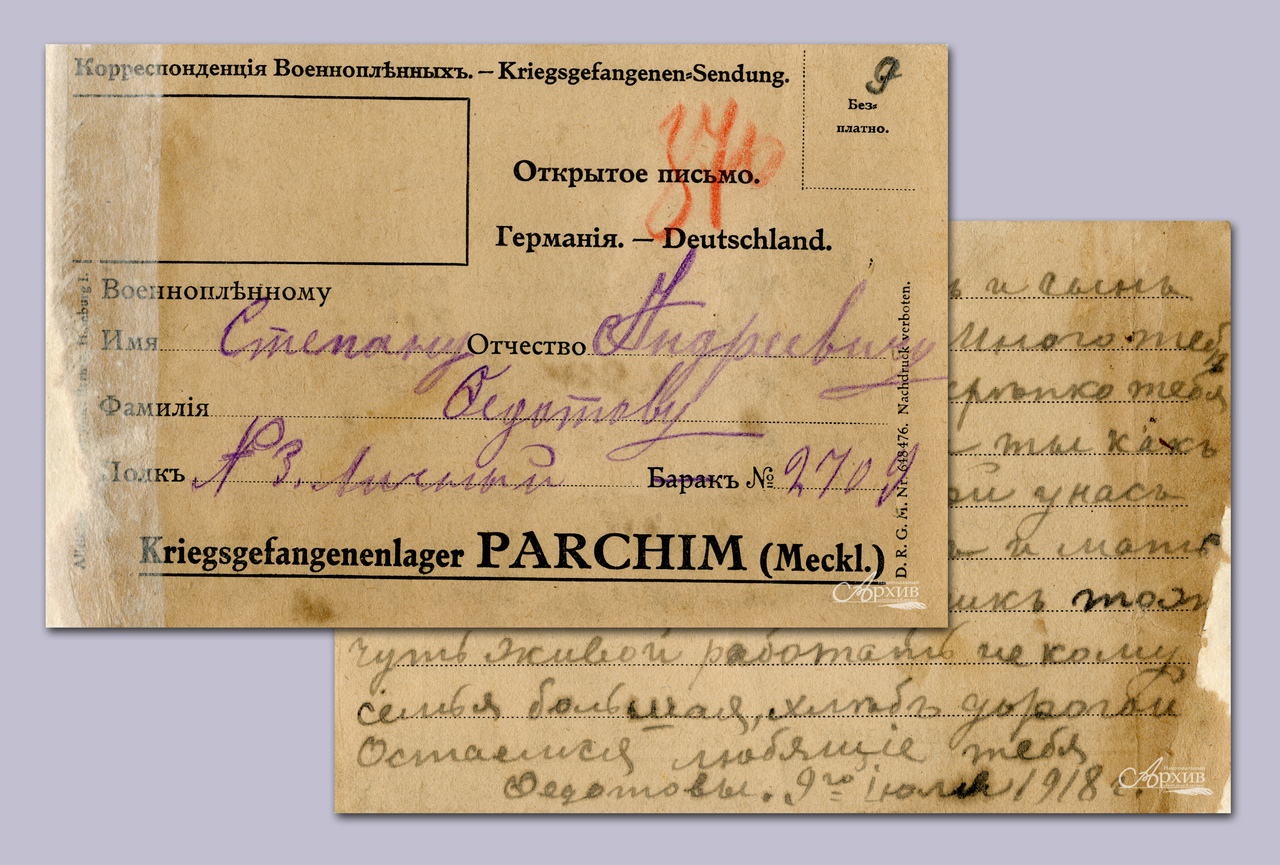 Корреспонденція Военноплѣнныхъ. — Kriegsgefangenen=Sendung.
9
Без=
платно.
Открытое письмо.
Германія. — Deutschland.
Военноплѣнному
Имя Степану Отчество Андреевичу
Фамилія Федотову
Полкъ № 3. Личный Баракъ № 2709
Kriegsgefangenenlager PARCHIM (Meckl.)
D. R. G. M. Nr. 648476. Nachdruck verboten.
и сынъ
Много теб
тебя
ты какъ
у насъ
и мать
чуть живой работать не кому
семья большая, хлѣбъ дорогой
Остаемися любящіе тебя
Федотовы. 9го іюля 1918 г.
Национальный
Архив
Национальный
Архив